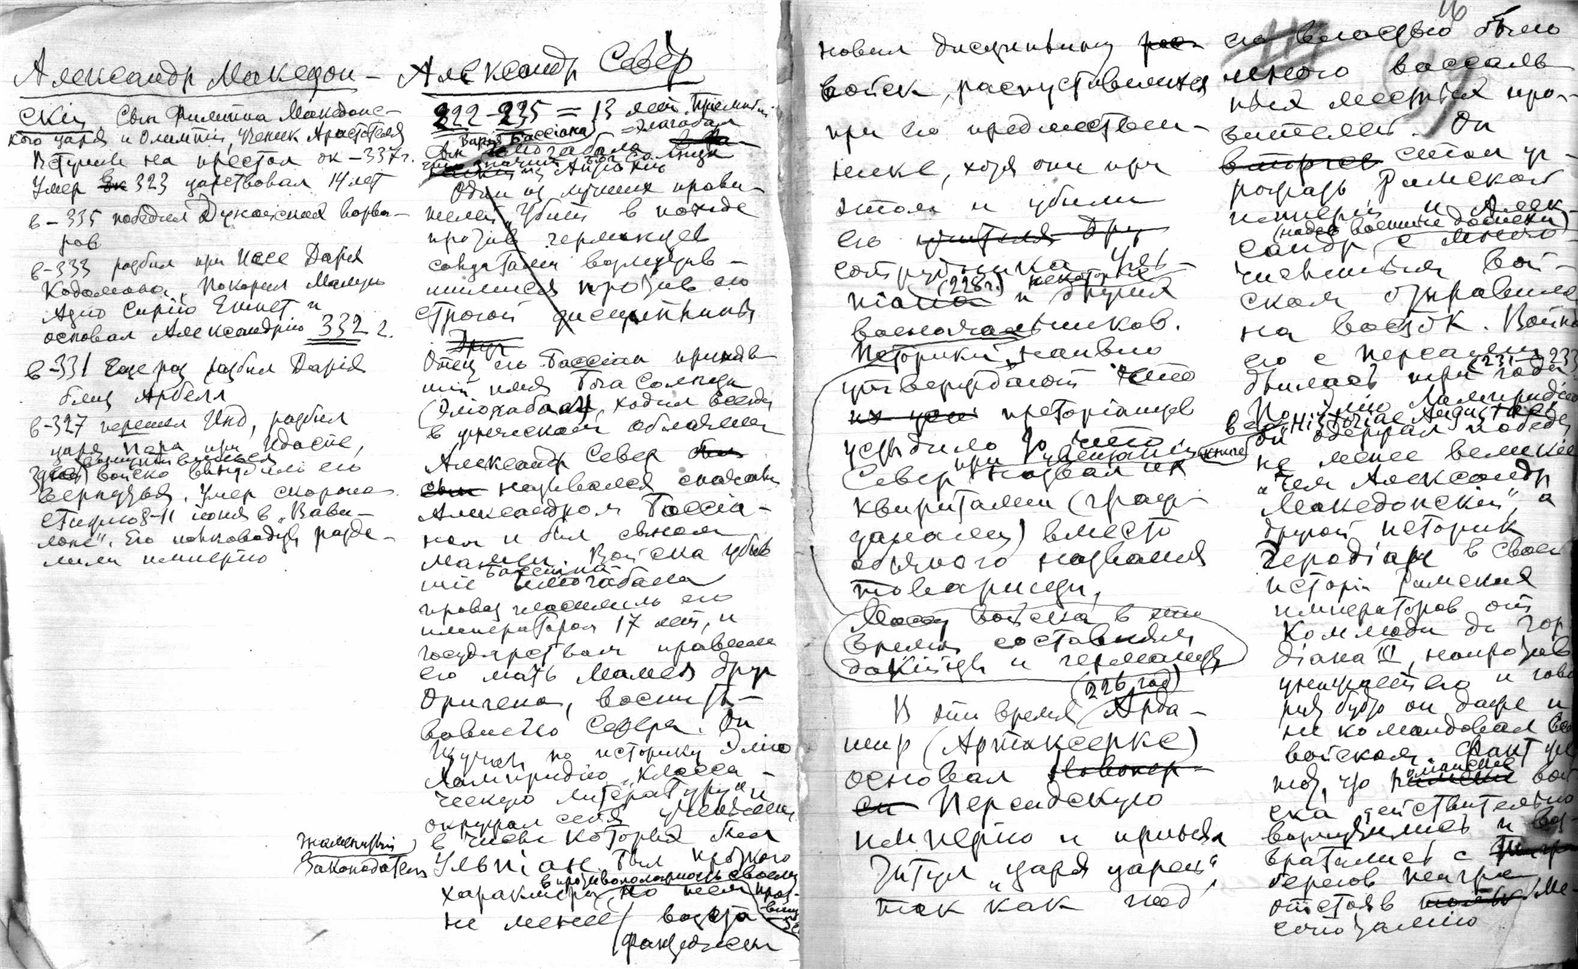 Александр Македон-
скій Сын Филиппа Македонс-
кого царя и Олимпіи, Ученик Аристотеля
Вступил на престол ок -337 г.
Умер 323 царствовал 14 лет
в -335 победил Дунайских варва-
ров
в -333 разбил при Иссе Дарія
Кодомана, Покорил Малую
Азію Сирію, Египет и
основал Александрію 332 г.
в -331 Еще раз разбил Дарія
близ Арбелл
в -327 перешел Инд, разбил
царя Пора при Идаспе,
войско вынудило его
вернуться. Умер скоропо-
стижно 8-11 іюня в "Вави-
лоне". Его полководцы разде-
лили имперію
Александр Север
222-235 = 13 лет.
Варія Бассіана = Элагабал
Один из лучших прави-
телей. Убит в походе
против германцев
солдатами возмутив-
шимися против его
строгой дисциплины
Отец его Бассіан приняв
шій имя бога Солнца
(Эліогабал), ходил всегда
в женском облачении
Александр Север
назывался сначала
Александром Бассіа-
ном и был сыном
Мамеи. Войска убив
шіе Бассіана
провозгласили его
императором 17 лет, и
государством правила
его мать Мамея друг
Оригена, воспиты-
вавшего Севера. Он
изучал по историку Элію
Лампридію "Класси-
ческую литературу" и
окружал себя учеными,
в числе которых был
знаменитый
законодатель
Ульпіан. Был кроткого
характера, в противоположность своему
но тем
не менее
новил дисциплину
войск, распустившихся
при его предшествен-
нике, хотя они при
этом и убили
его
сотрудника Уль-
піана (228 г.) и других
военачальников.
Историки наивно
утверждают что
преторіанцев
усмирило то что
Север при
назвал их
квиритами (граж-
данами) вместо
обычного названія
товарищи,
Массу войска в это
время составляли
дакійцы и германцы
(226 год)
В это время Арда-
шир (Артаксеркс)
основал
Персидскую
имперію и принял
титул "царя царей",
так как под
16
его властью было
много вассаль
ных местных пра-
вителей. Он
стал уг-
рожать Римской
имперіи и Алек-
сандр с много-
численным вой-
ском отправился
на восток. Война
его с персами (231-233)
длилась три года.
По Элію Лампридію
в его Historiae Augustae
он одержал победу
не менее великую
"чем Александр
Македонскій", а
другой историк
Геродіан в своей
исторіи римских
императоров от
Коммода до Гор
діана III, напротив
и гово
рит будто он даже и
не командовал
войском. Факт
тот, что римскіе вой
ска действительно
возвратились с
берегов Тигра
отстояв Ме-
сопотамію